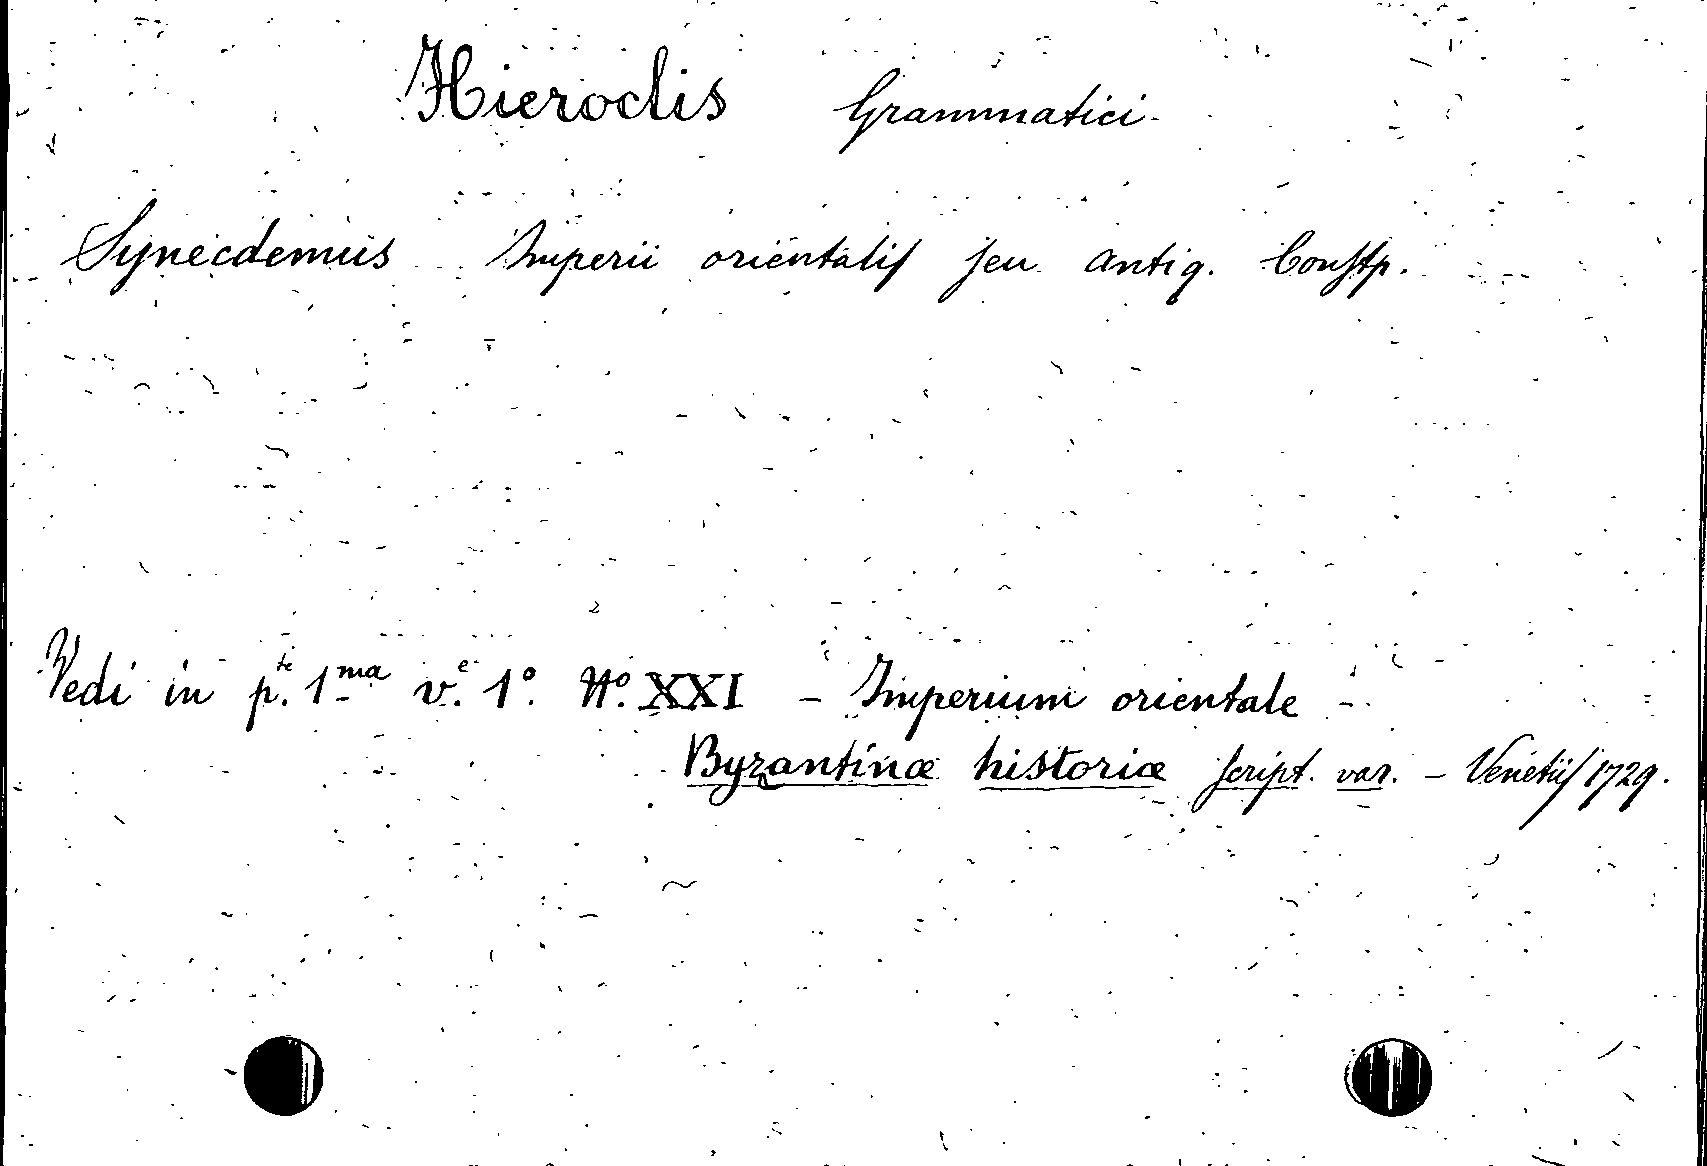 Hieroclis Grammatici
Synecdemus Imperii orientalis seu antiq. Constp.
Vedi in p.te 1.ma v.e 1°. N°. XXI - Imperium orientale -
Byzantinæ historiæ script. var. - Venetiis 1729.